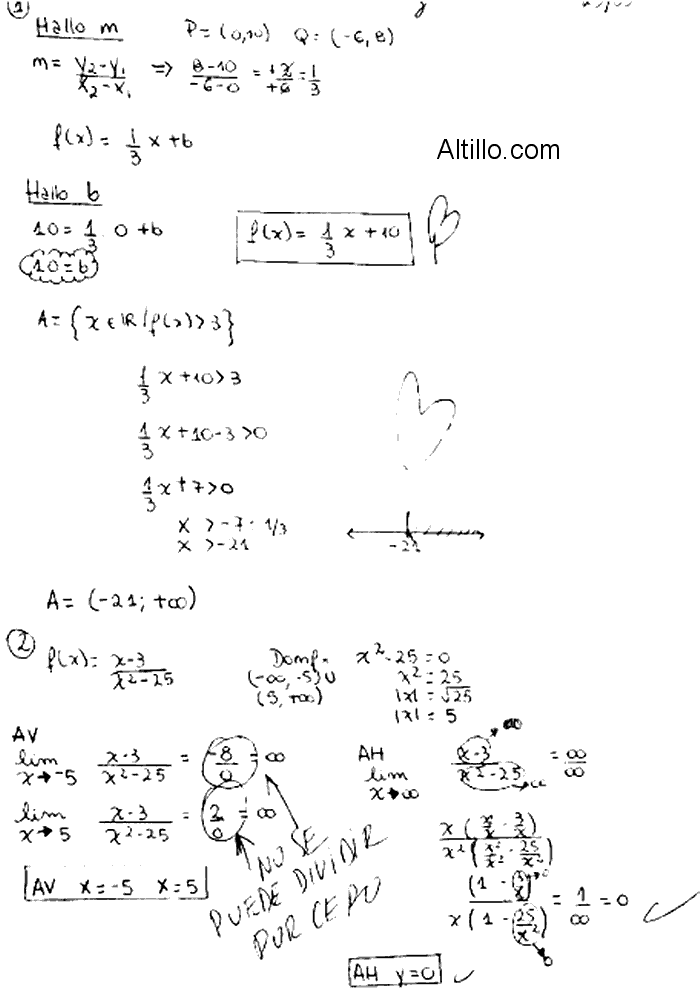 ①
Hallo m P = (0,10) Q = (-6, 8)
m = (y₂-y₁)/(x₂-x₁) ⇒ (8-10)/(-6-0) = +2/+6 = 1/3
f(x) = 1/3 x + b
Altillo.com
Hallo b
10 = 1/3 . 0 + b
10 = b
f(x) = 1/3 x + 10
A = {x ∈ IR / f(x) > 3}
1/3 x + 10 > 3
1/3 x + 10 - 3 > 0
1/3 x + 7 > 0
x > -7 . 1/3
x > -21
-21
A = (-21; +∞)
②
f(x) = (x-3)/(x²-25)
Domf =
(-∞, -5) U
(5, +∞)
x² - 25 = 0
x² = 25
|x| = √25
|x| = 5
AV
lim x→-5 (x-3)/(x²-25) = -8/0 = ∞
lim x→5 (x-3)/(x²-25) = 2/0 = ∞
AV x = -5 x = 5
NO SE
PUEDE DIVIDIR
POR CERO
AH
lim x→∞ (x-3)/(x²-25) = ∞/∞
x(x/x - 3/x)/x²(x²/x² - 25/x²)
(1 - 3/x)/x(1 - 25/x²) = 1/∞ = 0
→0
→0
AH y = 0